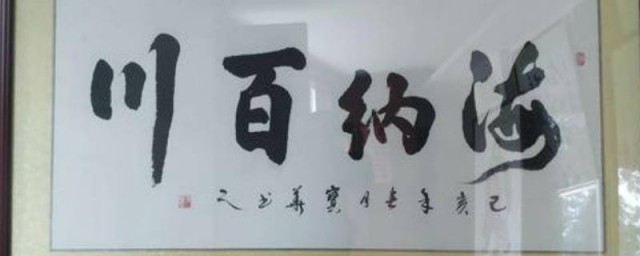 海纳百川
己亥年春月寶華书之